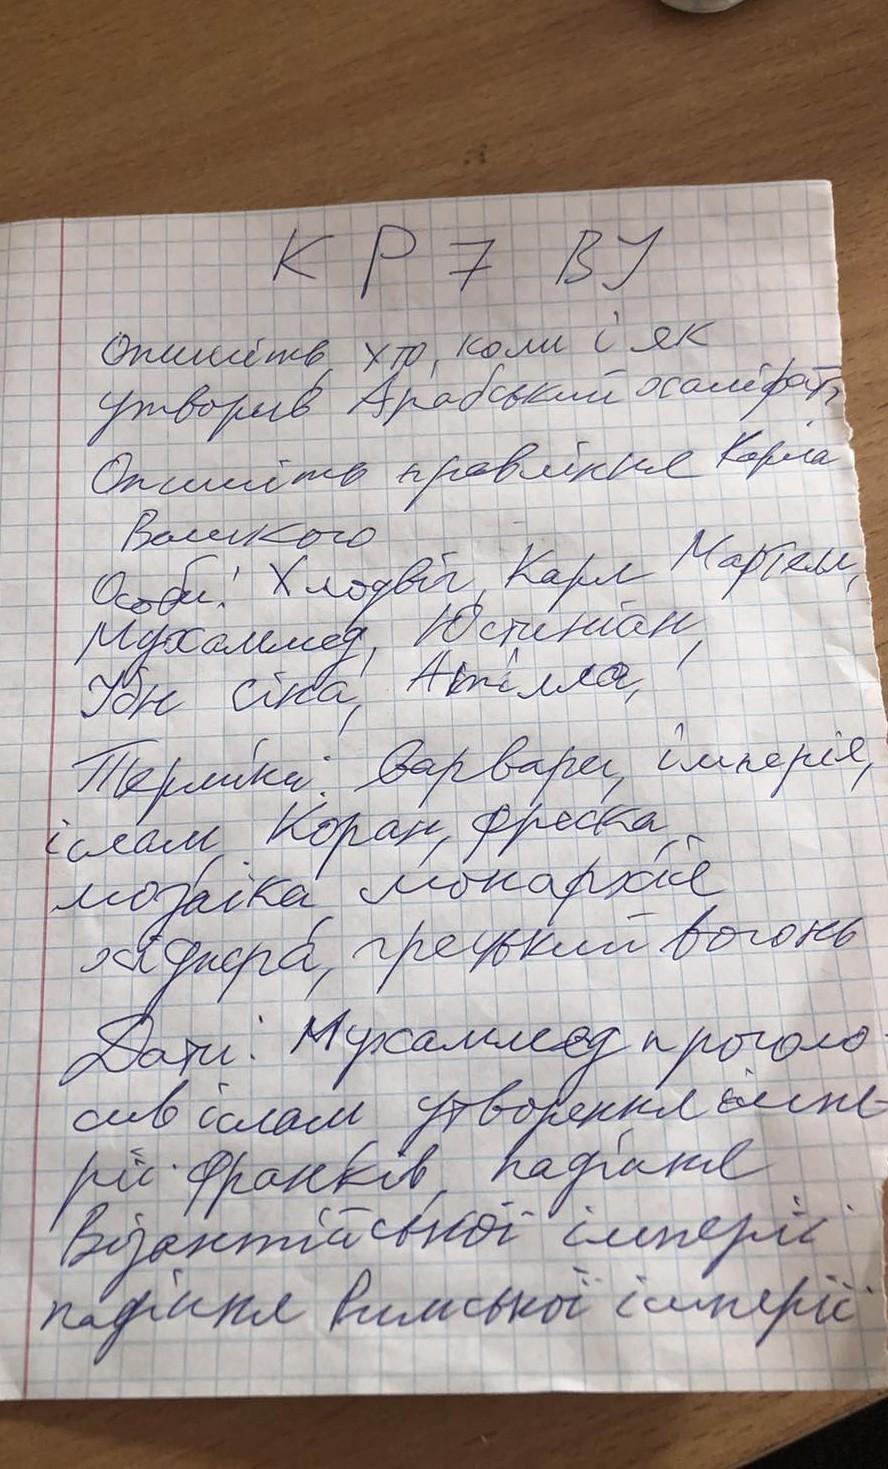 КР 7 ВУ
Опишіть, хто, коли і як
утворив Арабський халіфат,
Опишіть правління Карла
Великого
Особи: Хлодвіг, Карл Мартелл,
Мухаммед, Юстиніан,
Ібн Сіна, Аттілла,
Терміни: варвари, імперія,
іслам, Коран, фреска,
мозаїка, монархія
хіджра, грецький вогонь
Дати: Мухаммед проголо-
сив іслам, утворення імпе-
рії франків, падіння
Візантійської імперії
падіння Римської імперії